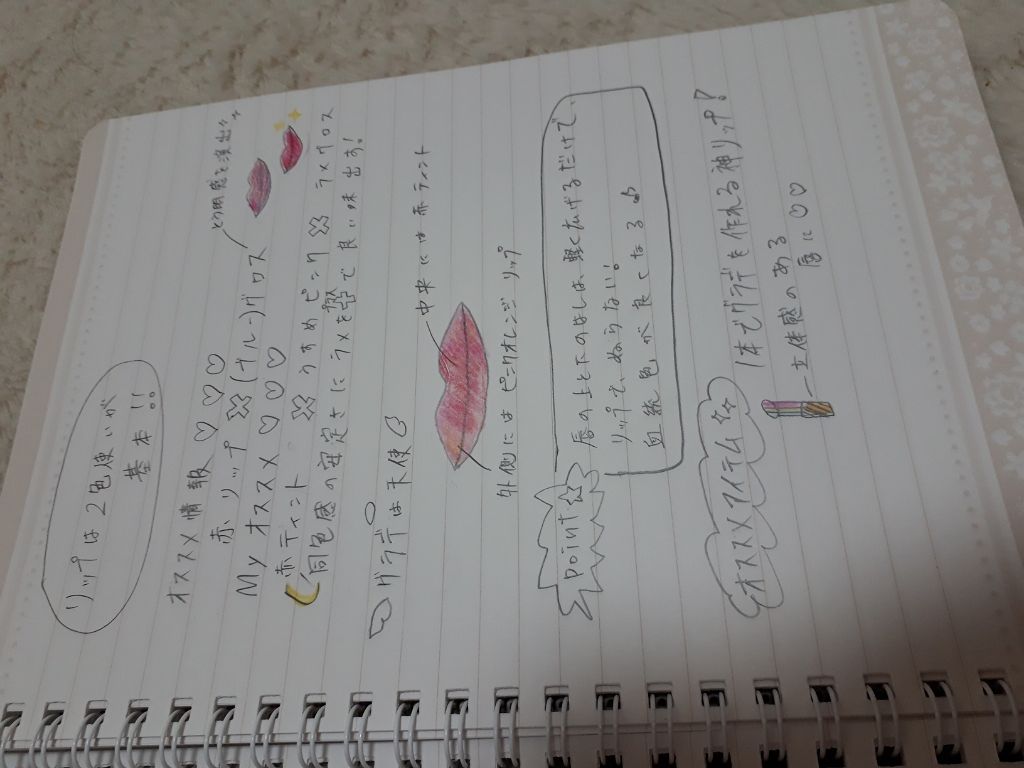 リップは2色使いが
基本!!
オススメ情報♡♡♡
赤リップ × (ナルー)グロス
とろ感を演出
My オススメ♡♡♡
赤ティント × うすめピンク × ラメグロス
同色感の安定さにラメを散らして良い味出す!
グラデは不使
中央には赤ティント
外側にはピンクオレンジリップ
point☆
唇の上と下のはしは、軽くなげるだけで、
リップをぬらない!
血色が良くなる♪
オススメアイテム☆☆
1本でグラデを作れる神リップ!
立体感のある
唇に♡♡